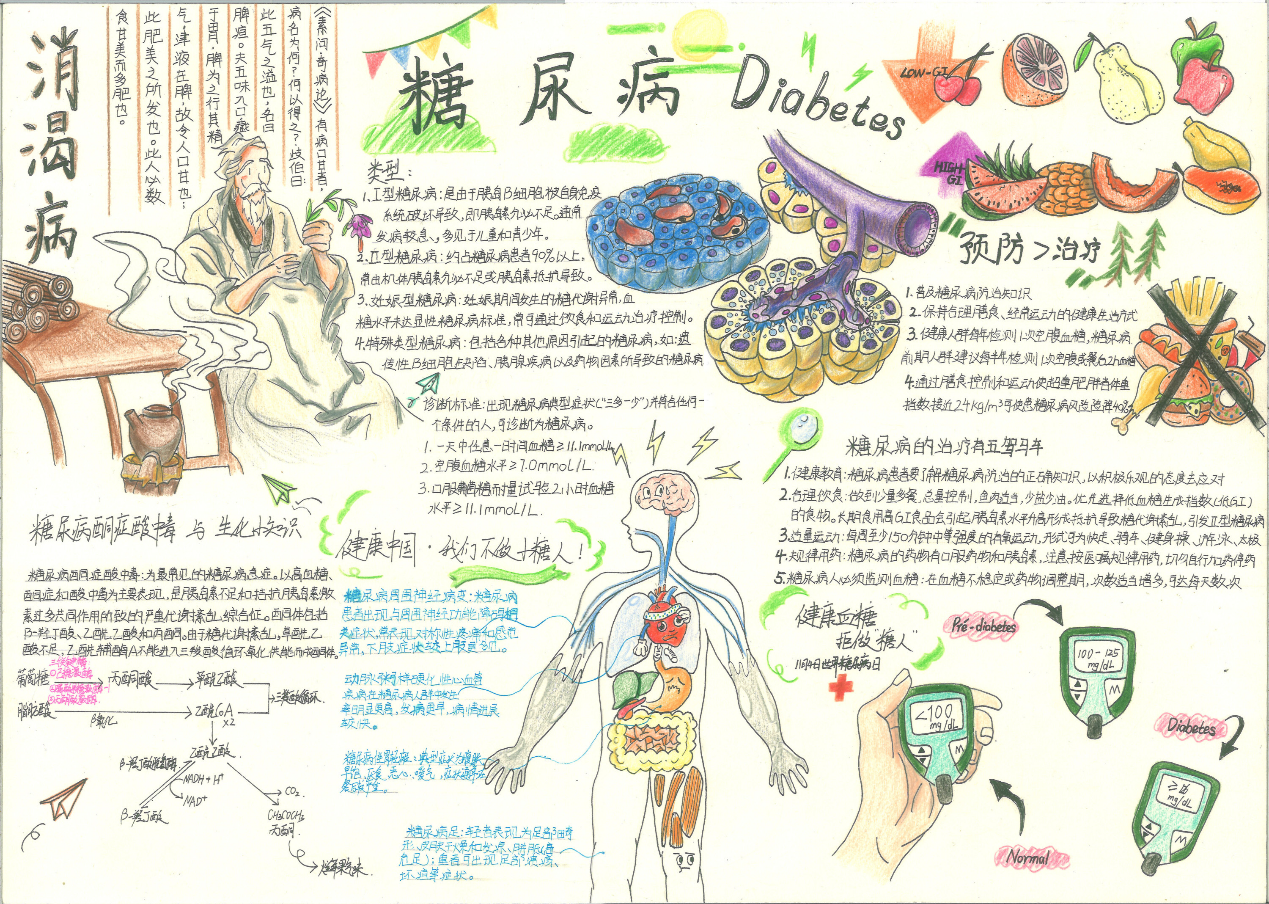 消渴病
《素问·奇病论》有病口甘者,
病名为何?何以得之?歧伯曰:
此五气之溢也,名曰
脾疸。夫五味入口藏
于胃,脾为之行其精
气,津液在脾,故令人口甘也;
此肥美之所发也。此人必数
食甘美而多肥也。
糖尿病 Diabetes
类型:
1.Ⅰ型糖尿病:是由于胰岛B细胞被自身免疫
系统破坏导致,即胰岛素分泌不足。通常
发病较急、多见于儿童和青少年。
2.Ⅱ型糖尿病:约占糖尿病患者90%以上,
常由机体胰岛素分泌不足或胰岛素抵抗导致。
3.妊娠型糖尿病:妊娠期间发生的糖代谢异常,血
糖水平未达显性糖尿病标准,常可通过饮食和运动治疗控制。
4.特殊类型糖尿病:包括各种其他原因引起的糖尿病,如:遗
传性B细胞点缺陷、胰腺疾病以及药物因素所导致的糖尿病
诊断标准:出现糖尿病典型症状("三多一少")并符合任何一
个条件的人,可诊断为糖尿病。
1.一天中任意一时间血糖≥11.1mmol/L
2.空腹血糖水平≥7.0mmoL/L
3.口服葡萄糖耐量试验2小时血糖
水平≥11.1mmoL/L.
LOW-GI
HIGH-GI
预防>治疗
1.普及糖尿病防治知识
2.保持合理膳食、经常运动的健康生活方式
3.健康人群每年检测1次空腹血糖,糖尿病
前期人群建议每半年检测1次空腹或餐后2h血糖
4.通过膳食控制和运动使超重肥胖者体重
指数接近24kg/m³可使患糖尿病风险降
糖尿病的治疗有五驾马车
1.健康教育:糖尿病患者要了解糖尿病防治的正确知识,以积极乐观的态度去应对
2.合理饮食:做到少量多餐,总量控制,鱼肉适当,少盐少油。优先选择低血糖生成指数(低GI)
的食物。长期食用高GI食品会引起胰岛素水平升高形成抵抗导致糖代谢紊乱,引发Ⅱ型糖尿病
3.适量运动:每周至少150分钟中等强度的有氧运动,形式可为快走、骑车、健身操、游泳、太极
4.规律用药:糖尿病的药物有口服药物和胰岛素,注意按医嘱规律用药,切勿自行加药停药
5.糖尿病人必须监测血糖:在血糖不稳定或药物调整期,次数适当增多,可达每天数次
糖尿病酮症酸中毒 与 生化小知识
糖尿病酮症酸中毒:为最常见的糖尿病急症。以高血糖、
酮症和酸中毒为主要表现,是胰岛素不足和拮抗胰岛素激
素过多共同作用所致的严重代谢紊乱综合征。酮体包括
β-羟丁酸、乙酰乙酸和丙酮。由于糖代谢紊乱,草酰乙
酸不足,乙酰辅酶A不能进入三羧酸循环氧化供能而成酮体。
葡萄糖
丙酮酸
草酰乙酸
三羧酸循环
脂肪酸
β氧化
乙酰CoA
x2
乙酰乙酸
NADH+H⁺
NAD⁺
β-羟丁酸
CO₂
CH₃COCH₃
丙酮
健康中国·我们不做"小糖人!
糖尿病周围神经病变:糖尿病
患者出现与周围神经功能障碍相
关症状,常表现对称性疼痛和感觉
异常,下肢症状较上肢更多见。
动脉粥样硬化性心血管
疾病在糖尿病人群中发生
率明显更高,发病更早,病情进展
较快。
糖尿病性胃轻瘫:典型症状为腹胀
早饱、厌食、恶心、嗳气,
糖尿病足:轻者表现为足部畸
形、皮肤干燥和发凉、胼胝(高
危足);重者可出现足部溃疡、
坏疽等症状。
健康血糖
拒做"糖人"
11月14日世界糖尿病日
Pré-diabetes
100-125
mg/dL
M
<100
mg/dL
M
Diabetes
mg/dL
M
Normal